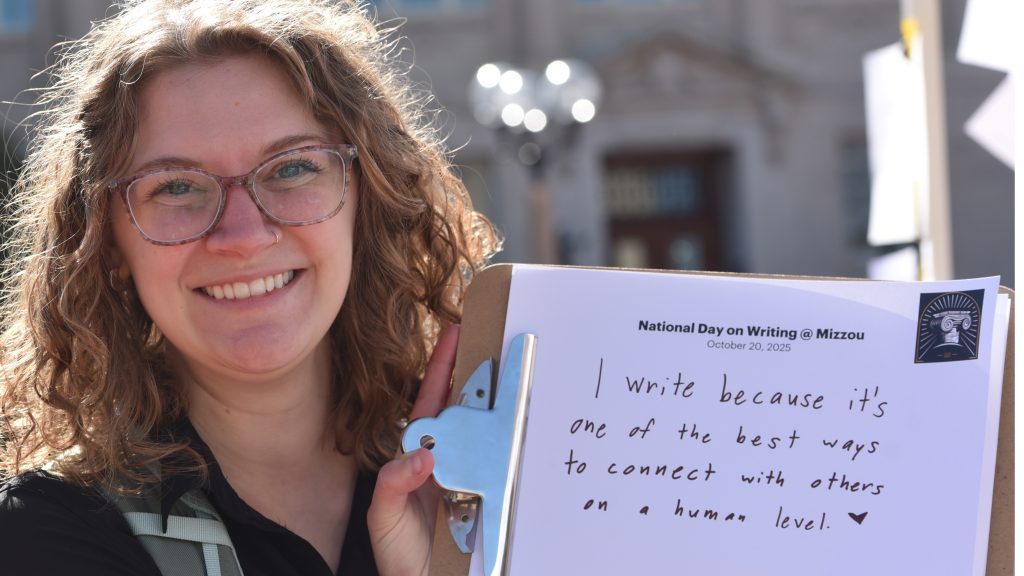 National Day on Writing @ Mizzou
October 20, 2025
I write because it's
one of the best ways
to connect with others
on a human level. ♥